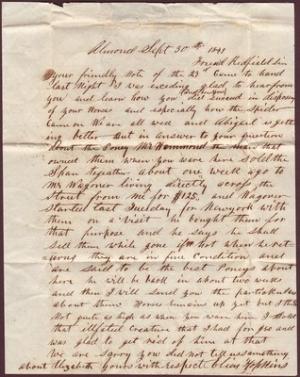 Almond Sept 30th 1848
Friend Redfield Sir
your friendly Note of the 23d Came to hand
last Night I was exceding glad to hear from
you and learn how you did succeed in disposing
of your Horse and especially how the Spider
came on We are all well and Abigail is gett
ing better But in answer to your question
about the Poney Mr Hammond the Man that
owned them when you were here sold the
Span Together about one week ago to
Mr Wagoner living directly across the
Street from Me for $125, and Wagoner
started last Tuesday for Newyork with
them on a visit he bought them for
that purpose and he says he shall
Sell them while gone if Not when he ret
urns they are in fine Condition and
are said to be the best Poneys about
here he will be back in about two weeks
and then I will send you the particulars
about them Horses hangs up yet but I think
Not quite as high as when you ware here I sold
that illfated Creature that I had for and
was glad to get rid of him at that
We are Sorry you did not tell us something
about Elizabeth yours with respect Hopkins